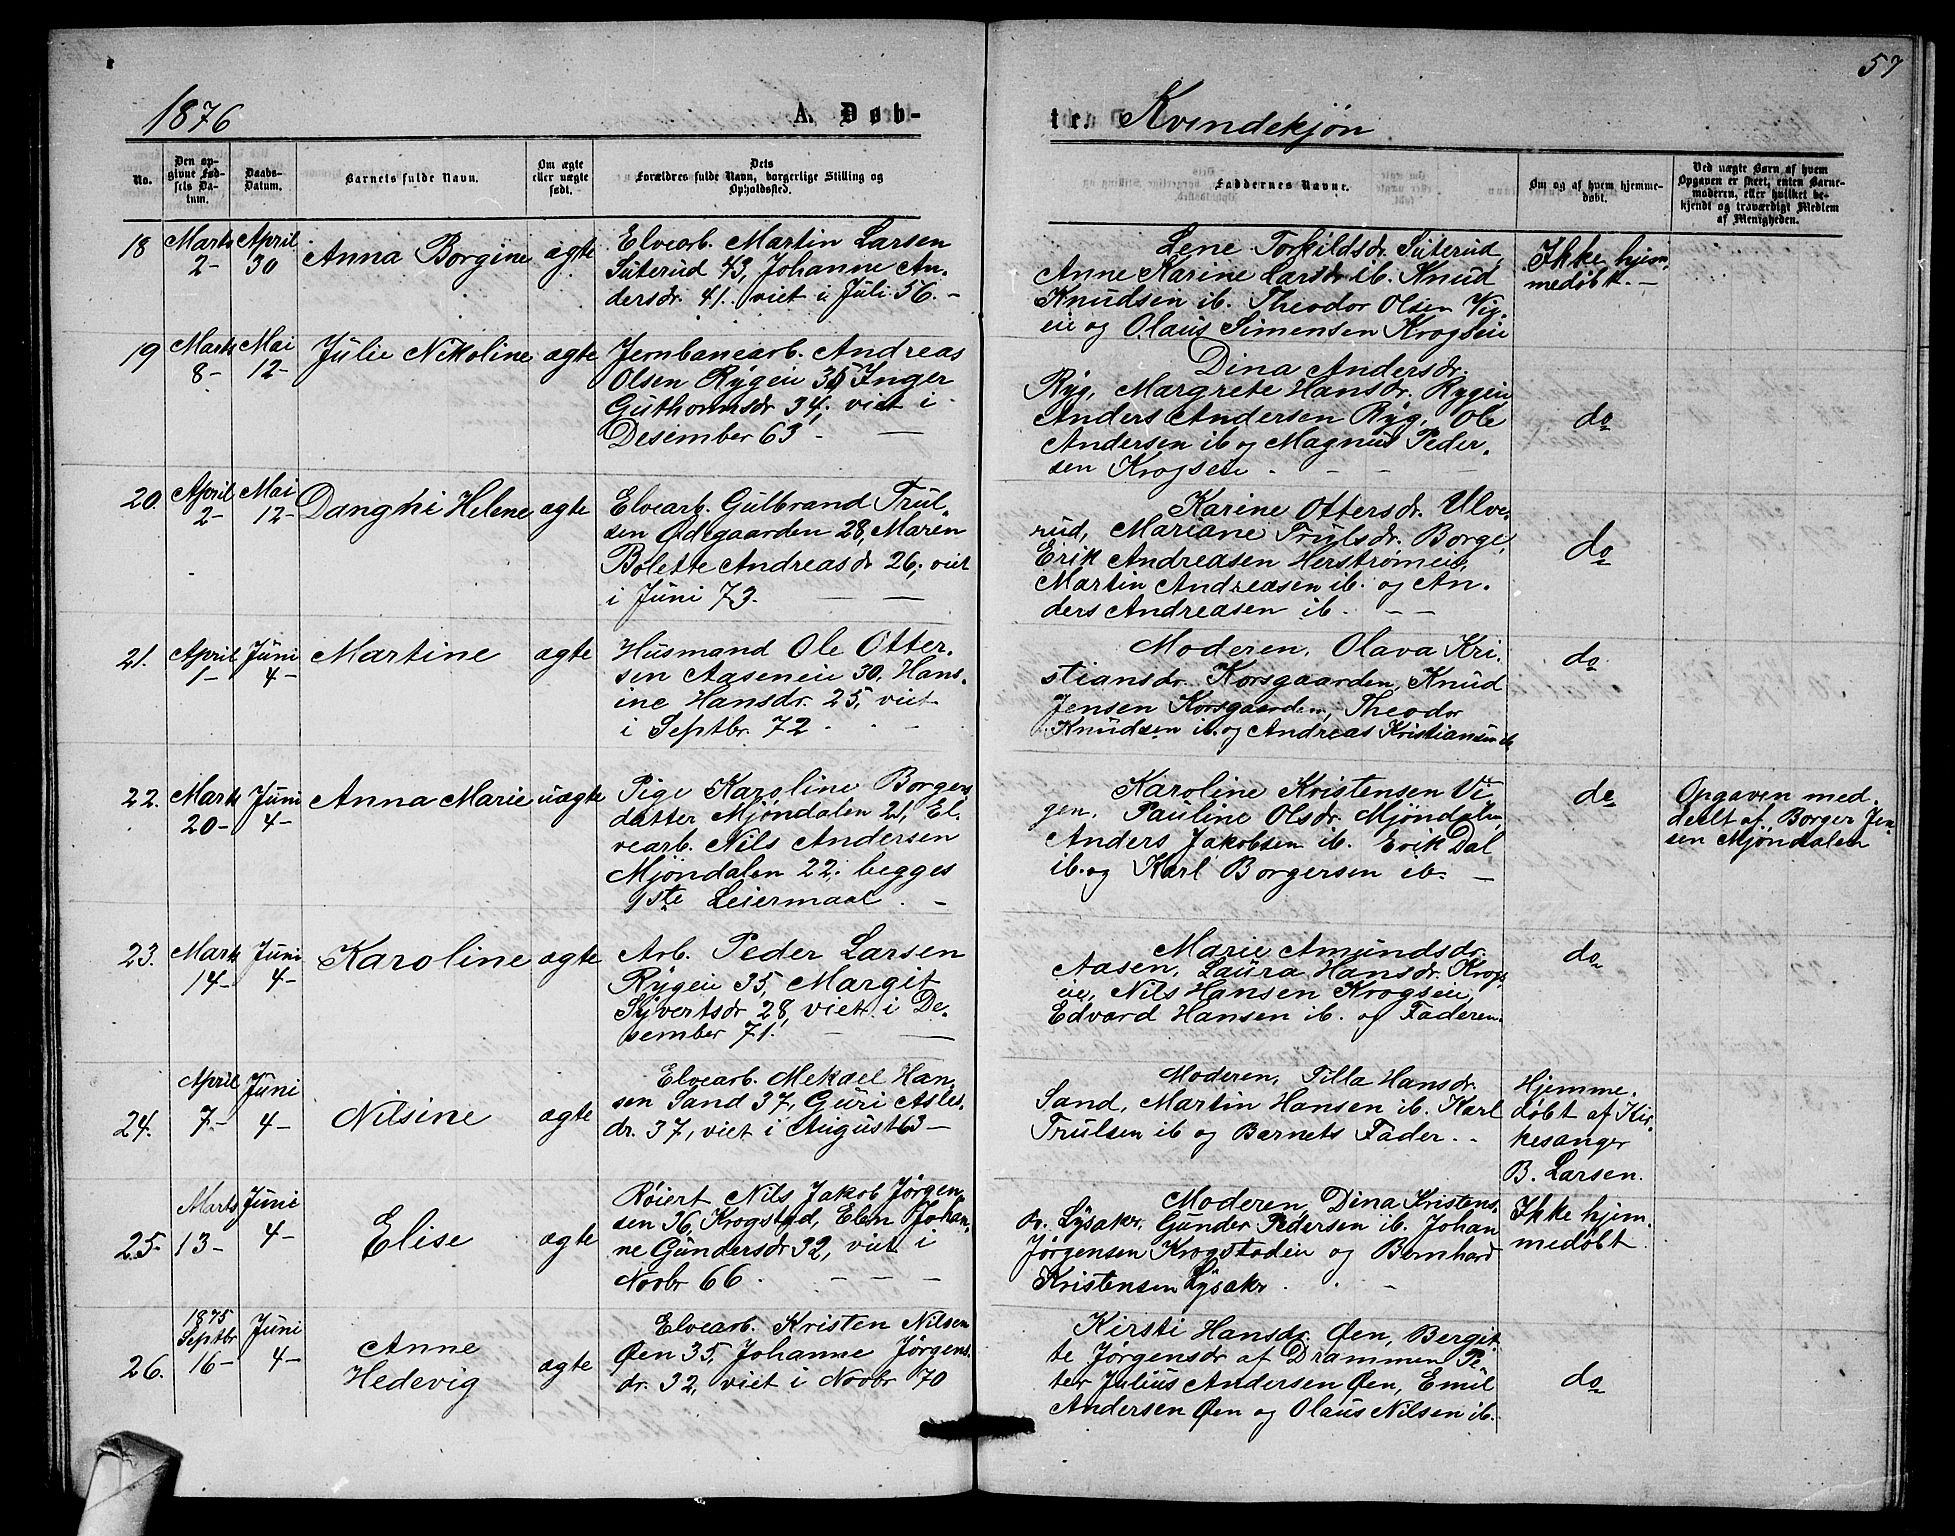 57
1876 A. Døb-
te. Kvindekjøn
No.
Den op-
givne Fød-
sels Da-
tum.
Daabs-
Datum.
Barnets fulde Navn.
Om ægte
eller uægte
født.
Dets
Forældres fulde Navn, borgerlige Stilling og
Opholdssted.
Faddernes Navne.
Om og af hvem hjemme-
døbt.
Ved uægte Børn af hvem
Opgaven er skeet, enten Barne-
moderen, eller hvilket be-
kjendt og troværdigt Medlem
af Menigheden.
18 Marts
2-
April
30
Anna Borgine
ægte
Elvearb. Martin Larsen
Süterud 43, Johanne An-
dersdr. 41. viet i Juli 56. -
Lene Torkildsdr. Süterud,
Anne Karine Larsdr ib. Knud
Knudsen ib. Theodor Olsen Vi-
eie og Olaus Simensen Krogseie
Ikke hjem-
medøbt. -
19 Marts
8-
Mai
12-
Julie Nikoline
ægte
Jernbanearb. Andreas
Olsen Rygeie 35 Inger
Guthormsdr 34, viet i
Desember 63 -
Dina Andersdr.
Ryg, Margrete Hansdr. Rygeie
Anders Andersen Ryg, Ole
Andersen ib og Magnus Peder-
sen Krogseie
do
20. April
2-
Mai
12-
Danghi Helene
ægte
Elvearb. Gulbrand Trul-
sen Ødegaarden 28, Maren
Bolette Andreasdr 26, viet
i Juni 73.
Karine Ottersdr. Ulve-
rud, Mariane Trulsdr. Borge,
Erik Andreasen Herstrømeie,
Martin Andreasen ib. og An-
ders Andreasen ib.
do
21. April
1-
Juni
4-
Martine
ægte
Husmand Ole Otter-
sen Aaseneie 30, Hans-
ine Hansdr. 25, viet
i Septbr. 72
Moderen, Olava Kri-
stiansdr. Korsgaarden, Knud
Jensen Korsgaarden, Theodor
Knudsen ib. og Andreas Kristiansen ib
do
22. Marts
20-
Juni
4-
Anna Marie
uægte
Pige Karoline Borgers
datter Mjøndalen 21, El-
vearb. Nils Andersen
Mjøndalen 22. begges
1ste Leiermaal. -
Karoline Kristensen Vi-
gen, Pauline Olsdr. Mjøndalen,
Anders Jakobsen ib. Erik Dal
ib. og Karl Borgersen ib. -
do
Opgaven med-
deelt af Borger Jen-
sen Mjøndalen
23. Marts
14-
Juni
4-
Karoline
ægte
Arb. Peder Larsen
Rygeie 35, Margit
Syvertsdr 28, viet i De-
sember 71.
Marie Amundsdr.
Aasen, Laura Hansdr. Krogs-
eie, Nils Hansen Krogseie,
Edvard Hansen ib. og Faderen.
do
24. April
7-
Juni
4-
Nilsine
ægte
Elvearb. Mekael Han-
sen Sand 37, Guri Asles-
dr. 37, viet i August 63 -
Moderen, Tilla Hansdr.
Sand, Martin Hansen ib. Karl
Trulsen ib og Barnets Fader. -
Hjemme-
døbt af Kir-
kesanger
B. Larsen.
25. Marts
13-
Juni
4-
Elise
ægte
Røiert Nils Jakob Jørgen-
sen 36, Krogstad, Elen Johan-
ne Gundersdr 32, viet i
Novbr 66.
Moderen, Dina Kristens-
dr. Lysaker, Gunder Pedersen ib. Johan
Jørgensen Krogstadeie og Bernhard
Kristensen Lysaker
Ikke hjem-
medøbt.
26. 1875
Septbr
16-
Juni
4-
Anne
Hedevig
ægte
Elvearb. Kristen Nilsen
Øen 35, Johanne Jørgens-
dr. 32, viet i Novbr 70
Kirsti Hansdr. Øen, Bergit-
te Jørgensdr af Drammen Pe-
ter Julius Andersen Øen, Emil
Andersen Øen og Olaus Nilsen ib.
do